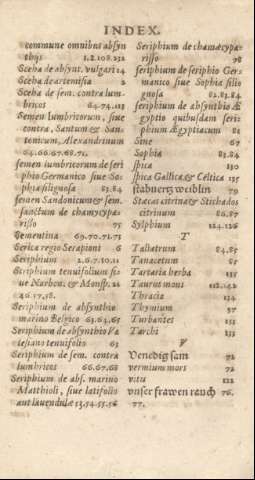 INDEX.
commune omnibus absyn
thijs 1.2.108.232
Sceha de absynt. vulgari 14
Sceha de artemisia 2
Sceha de sem. contra lum-
bricos 64.74.113
Semen lumbricorum, siue
contra, Santum & San-
tonicum, Alexandrinum
64.66.67.68.71.
semen lumbricorum de seri
phio Germanico siue So-
phia siliquosa 83.84
semen Sandonicum & sem.
sanctum de chamæcypa-
risso 75
Sementina 69.70.71.73
Serica regio Serapioni 6
Seriphium 2.6.7.10.11
Seriphium tenuifolium si-
ue Narbon. & Monsp. 22
46.57.58.
Seriphium de absynthio
marino Belgico 63.64.65
Seriphium de absynthio Va
lesiano tenuifolio 63
Seriphium de sem. contra
lumbricos 66.67.68
Seriphium de abs. marino
Matthioli, siue latifolio
aut lauendulæ 13.54.55.56
Seriphium de chamæcypa-
risso 78
seriphium de seriphio Ger-
manico siue Sophia silio
gnosa 82.83.84
seriphium de absynthio Æ
gyptio quibusdam seri-
phium Ægyptiacum 81
Sine 67
Sophia 83.84
spica 130
spica Gallica, & Celtica 135
stabwertz weiblin 79
Stæcas citrina & Stichados
citrinum 86.87
Sylphium 124.126
T
Taliatrum 84.85
Tanacetum 85
Tartaria herba 131
Taurus mons 112.142
Thracia 134
Thymium 57
Turbantes 131
Turchi 133
V
Venedig sam 72
vermium mors 72
vitu 122
vnser frawen rauch 76.
77.